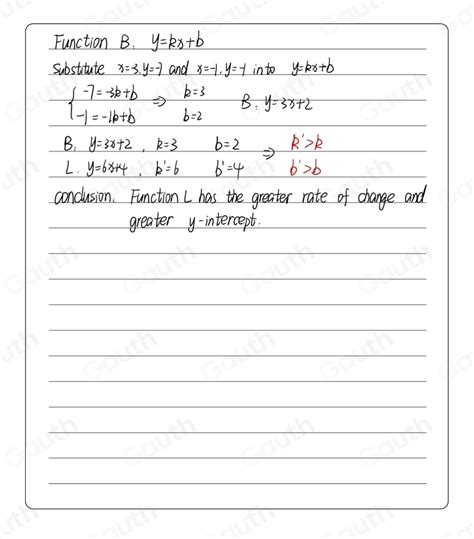 Function B. y=kx+b
Substitute x=-3.y=-7 and x=-1.y=-1 into y=kx+b
{ -7=-3k+b ⇒ k=3
-1=-1k+b b=2 B. y=3x+2
B. y=3x+2, k=3 b=2 ⇒ k'>k
L. y=6x+4, k'=6 b'=4 b'>b
conclusion. Function L has the greater rate of change and
greater y-intercept.